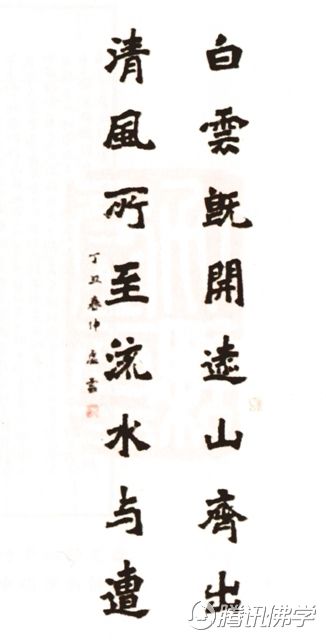 白雲既開遠山齊出
清風所至流水与遭
丁丑春仲 虛雲
腾讯佛学